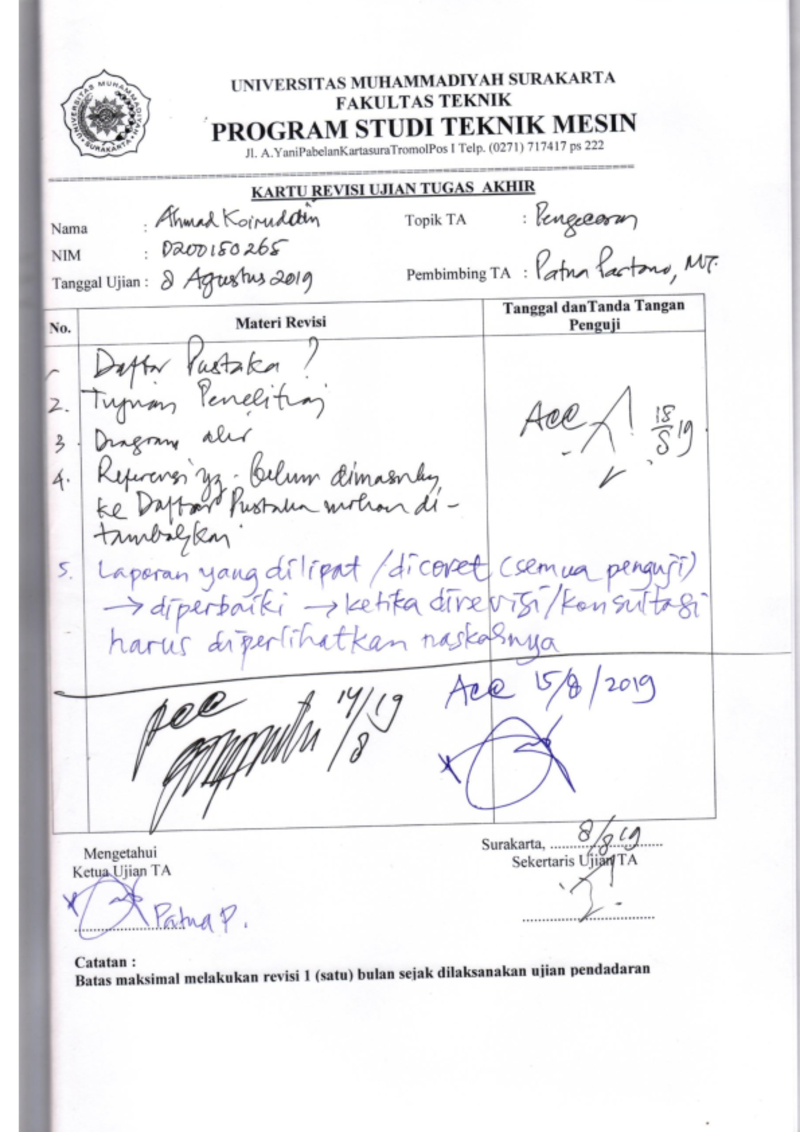 UNIVERSITAS MUHAMMADIYAH SURAKARTA
UNIVERSITAS MUHAMMADIYAH SURAKARTA
FAKULTAS TEKNIK
PROGRAM STUDI TEKNIK MESIN
Jl. A.YaniPabelanKartasuraTromolPos I Telp. (0271) 717417 ps 222
KARTU REVISI UJIAN TUGAS AKHIR
Nama : Ahmad Koiruddin Topik TA : Pengecoran
NIM : D200150265
Tanggal Ujian : 8 Agustus 2019 Pembimbing TA : Patna Partono, MT.
No. Materi Revisi Tanggal danTanda Tangan Penguji
1 Daftar Pustaka ?
2. Tujuan Penelitian
3 Diagram alir
Acc 18/8 19
4. Referensi yg. Belum dimasukkan
ke Daftar Pustaka mohon di-
tambahkan
5. Laporan yang dilipat/dicoret (semua penguji)
→ diperbaiki → ketika direvisi/konsultasi
harus diperlihatkan naskahnya
Acc 14/8 19
Acc 15/8/2019
Mengetahui
Ketua Ujian TA
Patna P.
Surakarta, 8/8 19
Sekertaris Ujian TA
Catatan :
Batas maksimal melakukan revisi 1 (satu) bulan sejak dilaksanakan ujian pendadaran